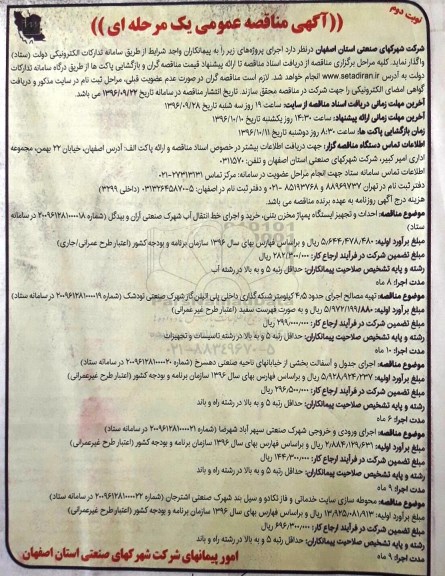 نوبت دوم
((آگهی مناقصه عمومی یک مرحله ای))
شرکت شهرکهای صنعتی استان اصفهان درنظر دارد اجرای پروژه‌های زیر را به پیمانکاران واجد شرایط از طریق سامانه تدارکات الکترونیکی دولت (ستاد)
واگذار نماید. کلیه مراحل برگزاری مناقصه از دریافت اسناد مناقصه تا ارائه پیشنهاد قیمت مناقصه گران و بازگشایی پاکت ها از طریق درگاه سامانه تدارکات
دولت به آدرس www.setadiran.ir انجام خواهد شد. لازم است مناقصه گران در صورت عدم عضویت قبلی، مراحل ثبت نام در سایت مذکور و دریافت
گواهی امضای الکترونیکی را جهت شرکت در مناقصه محقق سازند. تاریخ انتشار مناقصه در سامانه تاریخ ۱۳۹۶/۰۹/۲۲ می باشد.
آخرین مهلت زمانی دریافت اسناد مناقصه از سایت: ساعت ۱۹ روز سه شنبه تاریخ ۱۳۹۶/۰۹/۲۸
آخرین مهلت زمانی ارائه پیشنهاد: ساعت ۱۴:۳۰ روز یکشنبه تاریخ ۱۳۹۶/۱۰/۱۰
زمان بازگشایی پاکت ها: ساعت ۸:۳۰ روز دوشنبه تاریخ ۱۳۹۶/۱۰/۱۱
اطلاعات تماس دستگاه مناقصه گزار: جهت دریافت اطلاعات بیشتر در خصوص اسناد مناقصه و ارائه پاکت الف: آدرس اصفهان، خیابان ۲۲ بهمن، مجموعه
اداری امیر کبیر، شرکت شهرکهای صنعتی استان اصفهان و تلفن: ۰۳۱۵۷۰
اطلاعات تماس سامانه ستاد جهت انجام مراحل عضویت در سامانه: مرکز تماس ۲۷۳۱۳۱۳۱-۰۲۱
دفتر ثبت نام در تهران ۸۸۹۶۹۷۳۷ و ۸۵۱۹۳۷۶۸-۰۲۱ و دفتر ثبت نام در اصفهان: ۵-۰۳۱۳۲۶۴۵۸۷۰ (داخلی ۳۲۹۹)
هزینه درج آگهی روزنامه به عهده برنده مناقصه می باشد.
موضوع مناقصه: احداث و تجهیز ایستگاه پمپاژ مخزن بتنی، خرید و اجرای خط انتقال آب شهرک صنعتی آران و بیدگل (شماره ۲۰۰۹۶۱۲۸۱۰۰۰۰۱۸ در سامانه
ستاد)
مبلغ برآورد اولیه: ۵/۶۴۴/۴۷۸/۴۸۰ ریال و براساس فهارس بهای سال ۱۳۹۶ سازمان برنامه و بودجه کشور (اعتبار طرح عمرانی/جاری)
مبلغ تضمین شرکت در فرآیند ارجاع کار: ۲۸۲/۳۰۰/۰۰۰ ریال
رشته و پایه تشخیص صلاحیت پیمانکاران: حداقل پایه ۵ و به بالا در رشته آب
مدت اجرا: ۸ ماه
موضوع مناقصه: تهیه مصالح اجرای حدود ۴.۵ کیلومتر شبکه گذاری داخلی پلی اتیلن گاز شهرک صنعتی تودشک (شماره ۲۰۰۹۶۱۲۸۱۰۰۰۰۱۹ در سامانه ستاد)
مبلغ برآورد اولیه: ۵/۹۷۲/۱۹۹/۸۸۰ ریال و به صورت فهرست سفید (اعتبار طرح غیر عمرانی)
مبلغ تضمین شرکت در فرآیند ارجاع کار: ۲۹۹/۰۰۰/۰۰۰ ریال
رشته و پایه تشخیص صلاحیت پیمانکاران: حداقل پایه ۵ و به بالا در رشته تاسیسات و تجهیزات
مدت اجرا: ۱۰ ماه
موضوع مناقصه: اجرای جدول و آسفالت بخشی از خیابانهای ناحیه صنعتی دهسرخ (شماره ۲۰۰۹۶۱۲۸۱۰۰۰۰۲۰ در سامانه ستاد)
مبلغ برآورد اولیه: ۵/۹۲۸/۹۲۴/۲۳۷ ریال و براساس فهارس بهای سال ۱۳۹۶ سازمان برنامه و بودجه کشور (اعتبار طرح غیرعمرانی)
مبلغ تضمین شرکت در فرآیند ارجاع کار: ۲۹۶/۵۰۰/۰۰۰ ریال
رشته و پایه تشخیص صلاحیت پیمانکاران: حداقل رتبه ۵ و به بالا در رشته راه و باند
مدت اجرا: ۶ ماه
موضوع مناقصه: اجرای ورودی و خروجی شهرک صنعتی سپهر آباد شهرضا (شماره ۲۰۰۹۶۱۲۸۱۰۰۰۰۲۱ در سامانه ستاد)
مبلغ برآورد اولیه: ۲/۸۸۴/۱۲۹/۶۳۱ ریال و براساس فهارس بهای سال ۱۳۹۶ سازمان برنامه و بودجه کشور (اعتبار طرح غیرعمرانی)
مبلغ تضمین شرکت در فرآیند ارجاع کار: ۱۴۴/۳۰۰/۰۰۰ ریال
رشته و پایه تشخیص صلاحیت پیمانکاران: حداقل رتبه ۵ و به بالا در رشته راه و باند
مدت اجرا: ۹ ماه
موضوع مناقصه: محوطه سازی سایت خدماتی و فاز تکادو و سیل بند شهرک صنعتی اشترجان (شماره ۲۰۰۹۶۱۲۸۱۰۰۰۰۲۲ در سامانه ستاد)
مبلغ برآورد اولیه: ۱۳/۹۲۵/۰۸۱/۹۱۳ ریال و براساس فهارس بهای سال ۱۳۹۶ سازمان برنامه و بودجه کشور (اعتبار طرح غیرعمرانی)
مبلغ تضمین شرکت در فرآیند ارجاع کار: ۶۹۶/۳۰۰/۰۰۰ ریال
رشته و پایه تشخیص صلاحیت پیمانکاران: حداقل رتبه ۵ و به بالا در رشته راه و باند
مدت اجرا: ۹ ماه
امور پیمانهای شرکت شهرکهای صنعتی استان اصفهان